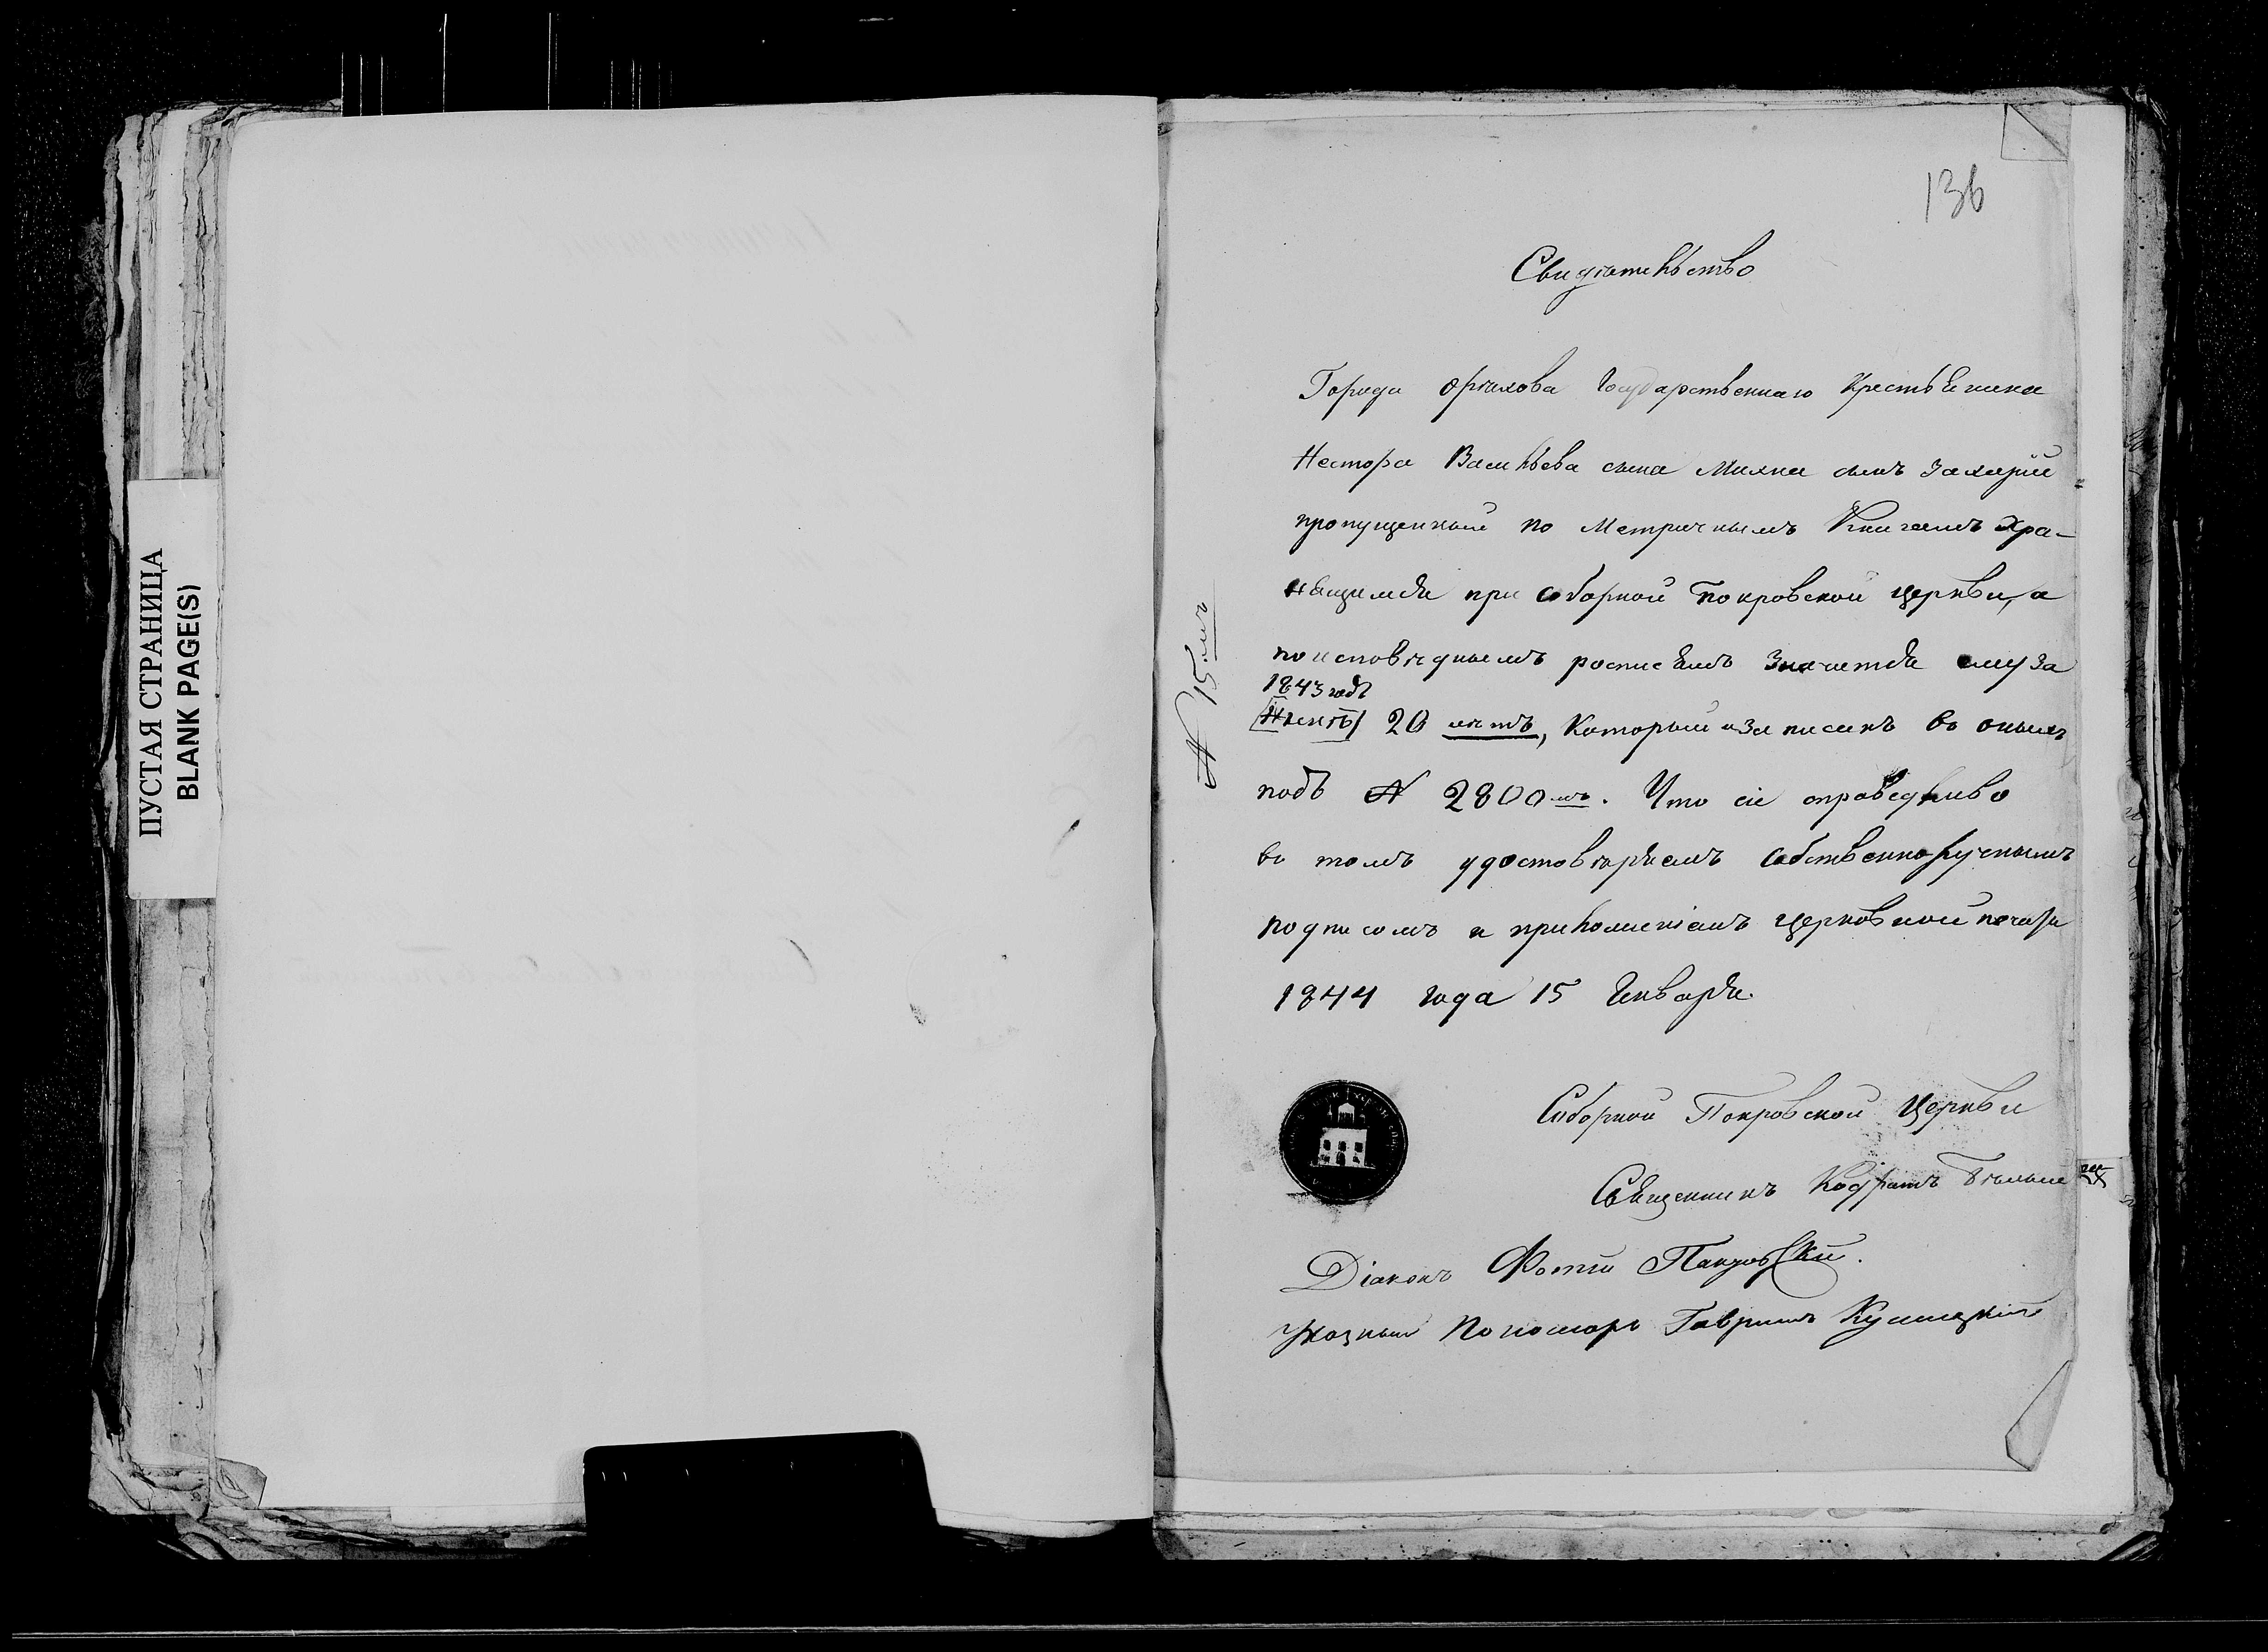 ПУСТАЯ СТРАНИЦА
BLANK PAGE(S)
136
Свидѣтельство
Города Орѣхова Государственнаго Крестьянина
Нестора Васильева сына Милки сынъ Захарій
пропущенный по Метричнымъ Книгамъ хра-
нящимся при соборной Покровской церкви, а
по исповѣднымъ росписямъ значится ему за
1843 годъ
20 лѣтъ, который и записанъ во оныхъ
подъ № 2800мъ. Что сіе справедливо
во томъ удостовѣряемъ собственноручнымъ
подписомъ и приложеніемъ церковной печати
1844 года 15 Января.
№ 15.мъ
Соборной Покровской Церкви
Священникъ Кодратъ
Діаконъ Фотій Покровскій.
Указный Пономарь Гавріилъ